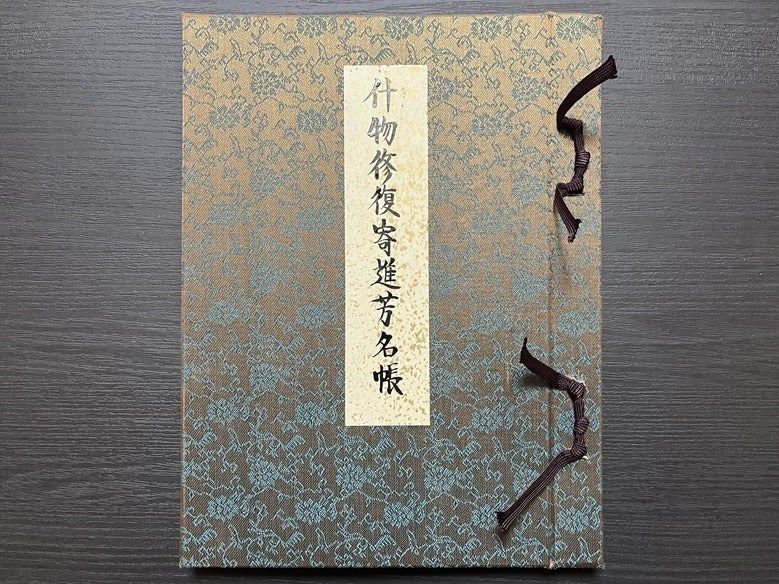 什物修復寄進芳名帳